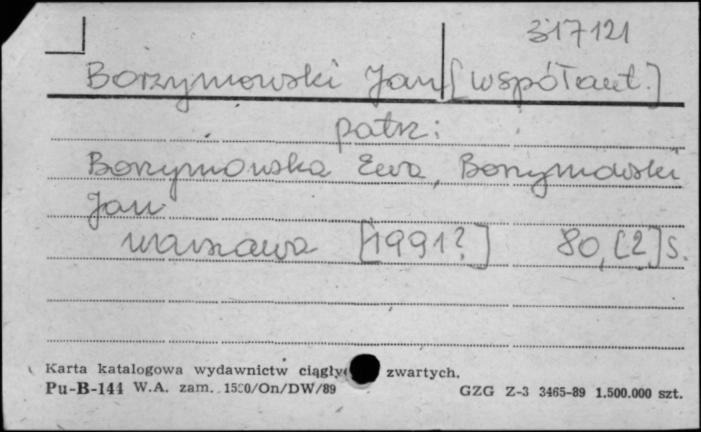 317121
Borzymowski Jan [współaut.]
patrz:
Borzymowska Ewa, Borzymowski
Jan
Warszawa [1991?] 80, [2] s.
Karta katalogowa wydawnictw zwartych.
Pu-B-144 W.A. zam. 1550/On/DW/89 GZG Z-3 3465-89 1.500.000 szt.